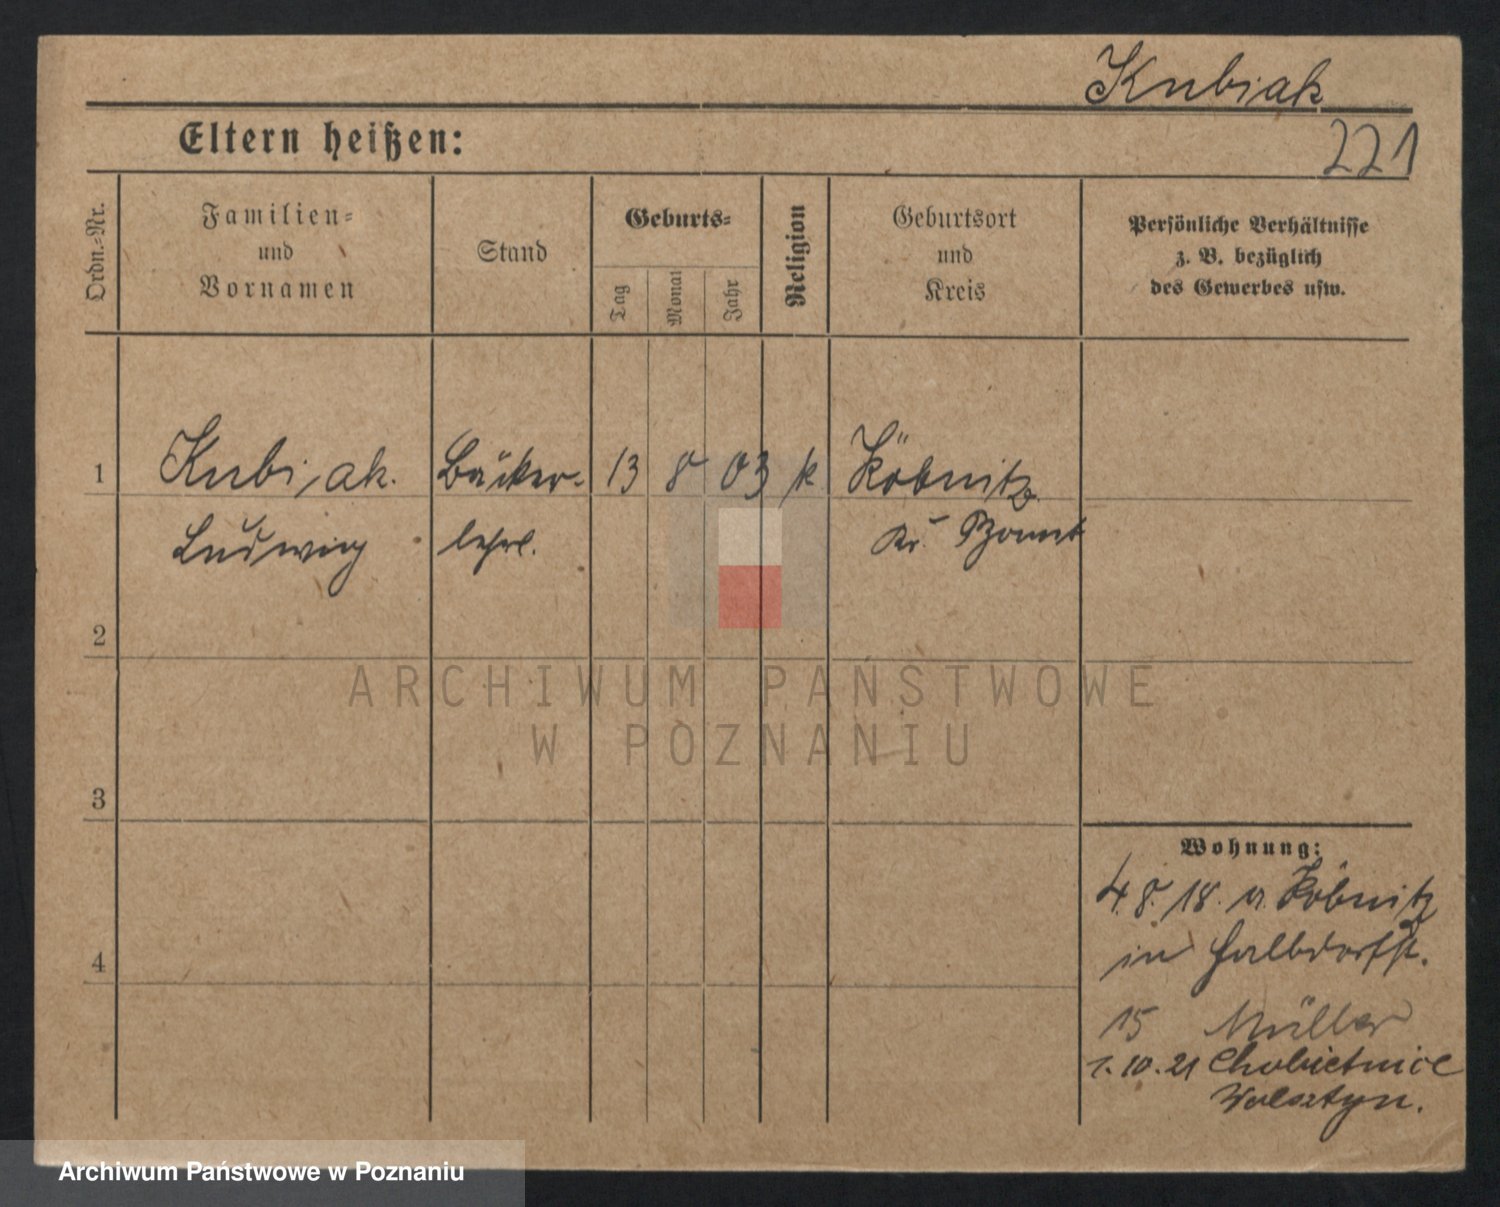 Kubiak
Eltern heißen:
221
Ordn.-Nr.
Familien-
und
Vornamen
Stand
Geburts-
Tag
Monat
Jahr
Religion
Geburtsort
und
Kreis
Persönliche Verhältnisse
z. B. bezüglich
des Gewerbes usw.
1 Kubiak. Bäcker- 13 8 03 k Köbnitz
Ludwig lehrl. Kr. Bomst
2
ARCHIWUM PAŃSTWOWE
W POZNANIU
3
Wohnung:
4.8.18. v. Köbnitz
in Halbdorfst.
4
15 Müller
1.10.21 Chobietnice
Wolsztyn.
Archiwum Państwowe w Poznaniu